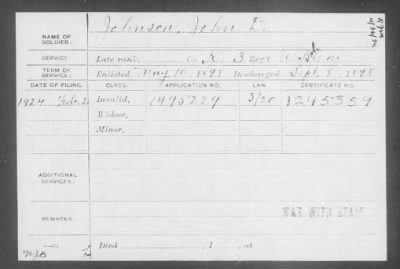 Johnson, John
NAME OF SOLDIER:
SERVICE: Late rank, Co. K, 3 Reg't
TERM OF SERVICE: Enlisted May 10, 1898 Discharged Sept. 8, 1898
DATE OF FILING. CLASS. APPLICATION NO. LAW. CERTIFICATE NO.
1927 Feb. 2 Invalid, 1495729 1245359
Widow,
Minor,
ADDITIONAL SERVICES:
WAR WITH SPAIN
REMARKS:
Died , 1 , at